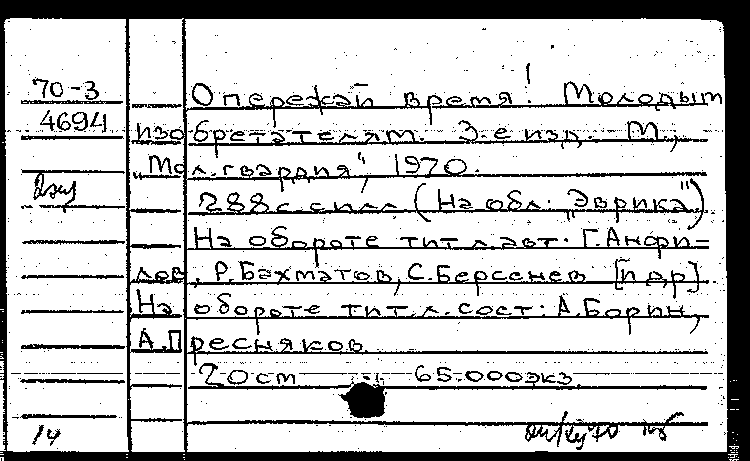 70-3
4694
Опережай время! Молодым
изобретателям. 3-е изд. М.,
„Мол.гвардия", 1970.
288с.силл. (На обл: „Эврика")
На обороте тит.л.авт: Г.Анфи=
лов, Р.Бахматов, С.Берсенев [и др]
На обороте тит.л.сост: А.Борин,
А.Пресняков
20ст 65.000экз.
14